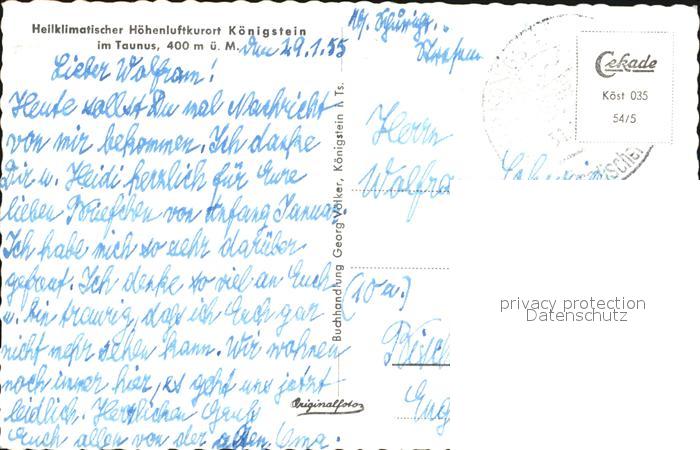 Heilklimatischer Höhenluftkurort Königstein
im Taunus, 400 m ü. M.
Den 29.1.55
Lieber Wolfram!
Heute sollst Du mal Nachricht
von mir bekommen. Ich danke
Dir u. Heidi herzlich für Eure
lieben Briefchen von Anfang Januar.
Ich habe mich so sehr darüber
gefreut. Ich denke so viel an Euch
u. bin traurig, daß ich Euch gar
nicht mehr sehen kann. Wir wohnen
noch immer hier, es geht uns jetzt
leidlich. Herzlichen Gruß
Euch allen von der alten Oma.
Buchhandlung Georg Völker, Königstein i. Ts.
Originalfoto
Herrn
Wolfra
(10 a.)
Cekade
Köst 035
54/5
privacy protection
Datenschutz